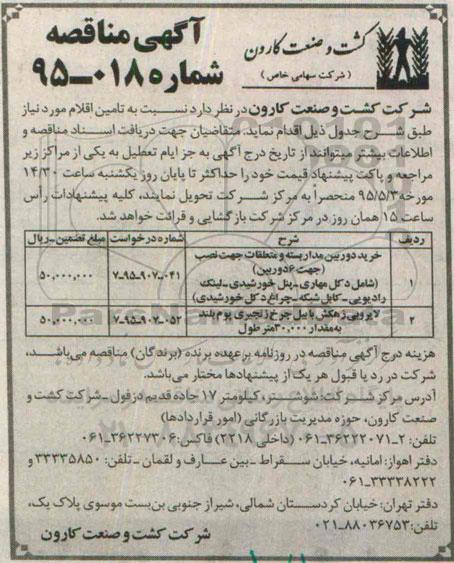 کشت و صنعت کارون
(شرکت سهامی خاص)
آگهی مناقصه
شماره ۰۱۸-۹۵
شرکت کشت و صنعت کارون در نظر دارد نسبت به تامین اقلام مورد نیاز
طبق شرح جدول ذیل اقدام نماید. متقاضیان جهت دریافت اسناد مناقصه و
اطلاعات بیشتر میتوانند از تاریخ درج آگهی به جز ایام تعطیل به یکی از مراکز زیر
مراجعه و پاکت پیشنهاد قیمت خود را حداکثر تا پایان روز یکشنبه ساعت ۱۴/۳۰
مورخه ۹۵/۵/۳ منحصراً به مرکز شرکت تحویل نمایند، کلیه پیشنهادات رأس
ساعت ۱۵ همان روز در مرکز شرکت بازگشایی و قرائت خواهد شد.
ردیف شرح شماره درخواست مبلغ تضمین-ریال
۱ خرید دوربین مداربسته و متعلقات جهت نصب
(جهت ۶ دوربین)
(شامل دکل مهاری-پنل خورشیدی-لینک
رادیویی-کابل شبکه-چراغ دکل خورشیدی) ۷-۹۵-۹۰۷-۰۴۱ ۵۰,۰۰۰,۰۰۰
۲ لایروبی زهکش با بیل چرخ زنجیری بوم بلند
به مقدار ۳۰,۰۰۰ متر طول ۷-۹۵-۹۰۷-۰۵۲ ۵۰,۰۰۰,۰۰۰
هزینه درج آگهی مناقصه در روزنامه بر عهده برنده (برندگان) مناقصه می‌باشد،
شرکت در رد یا قبول هر یک از پیشنهادها مختار می‌باشد.
آدرس مرکز شرکت: شوشتر، کیلومتر ۱۷ جاده قدیم دزفول-شرکت کشت و
صنعت کارون، حوزه مدیریت بازرگانی (امور قراردادها)
تلفن: ۲-۳۶۲۲۲۰۷۱-۰۶۱ (داخلی ۲۲۱۸) فاکس: ۳۶۲۲۷۳۰۶-۰۶۱
دفتر اهواز: امانیه، خیابان سقراط-بین عارف و لقمان-تلفن: ۳۳۳۳۵۸۵۰ و
۳۳۳۳۸۲۲۲-۰۶۱
دفتر تهران: خیابان کردستان شمالی، شیراز جنوبی بن‌بست موسوی پلاک یک،
تلفن: ۸۸۰۳۶۷۵۳-۰۲۱
شرکت کشت و صنعت کارون